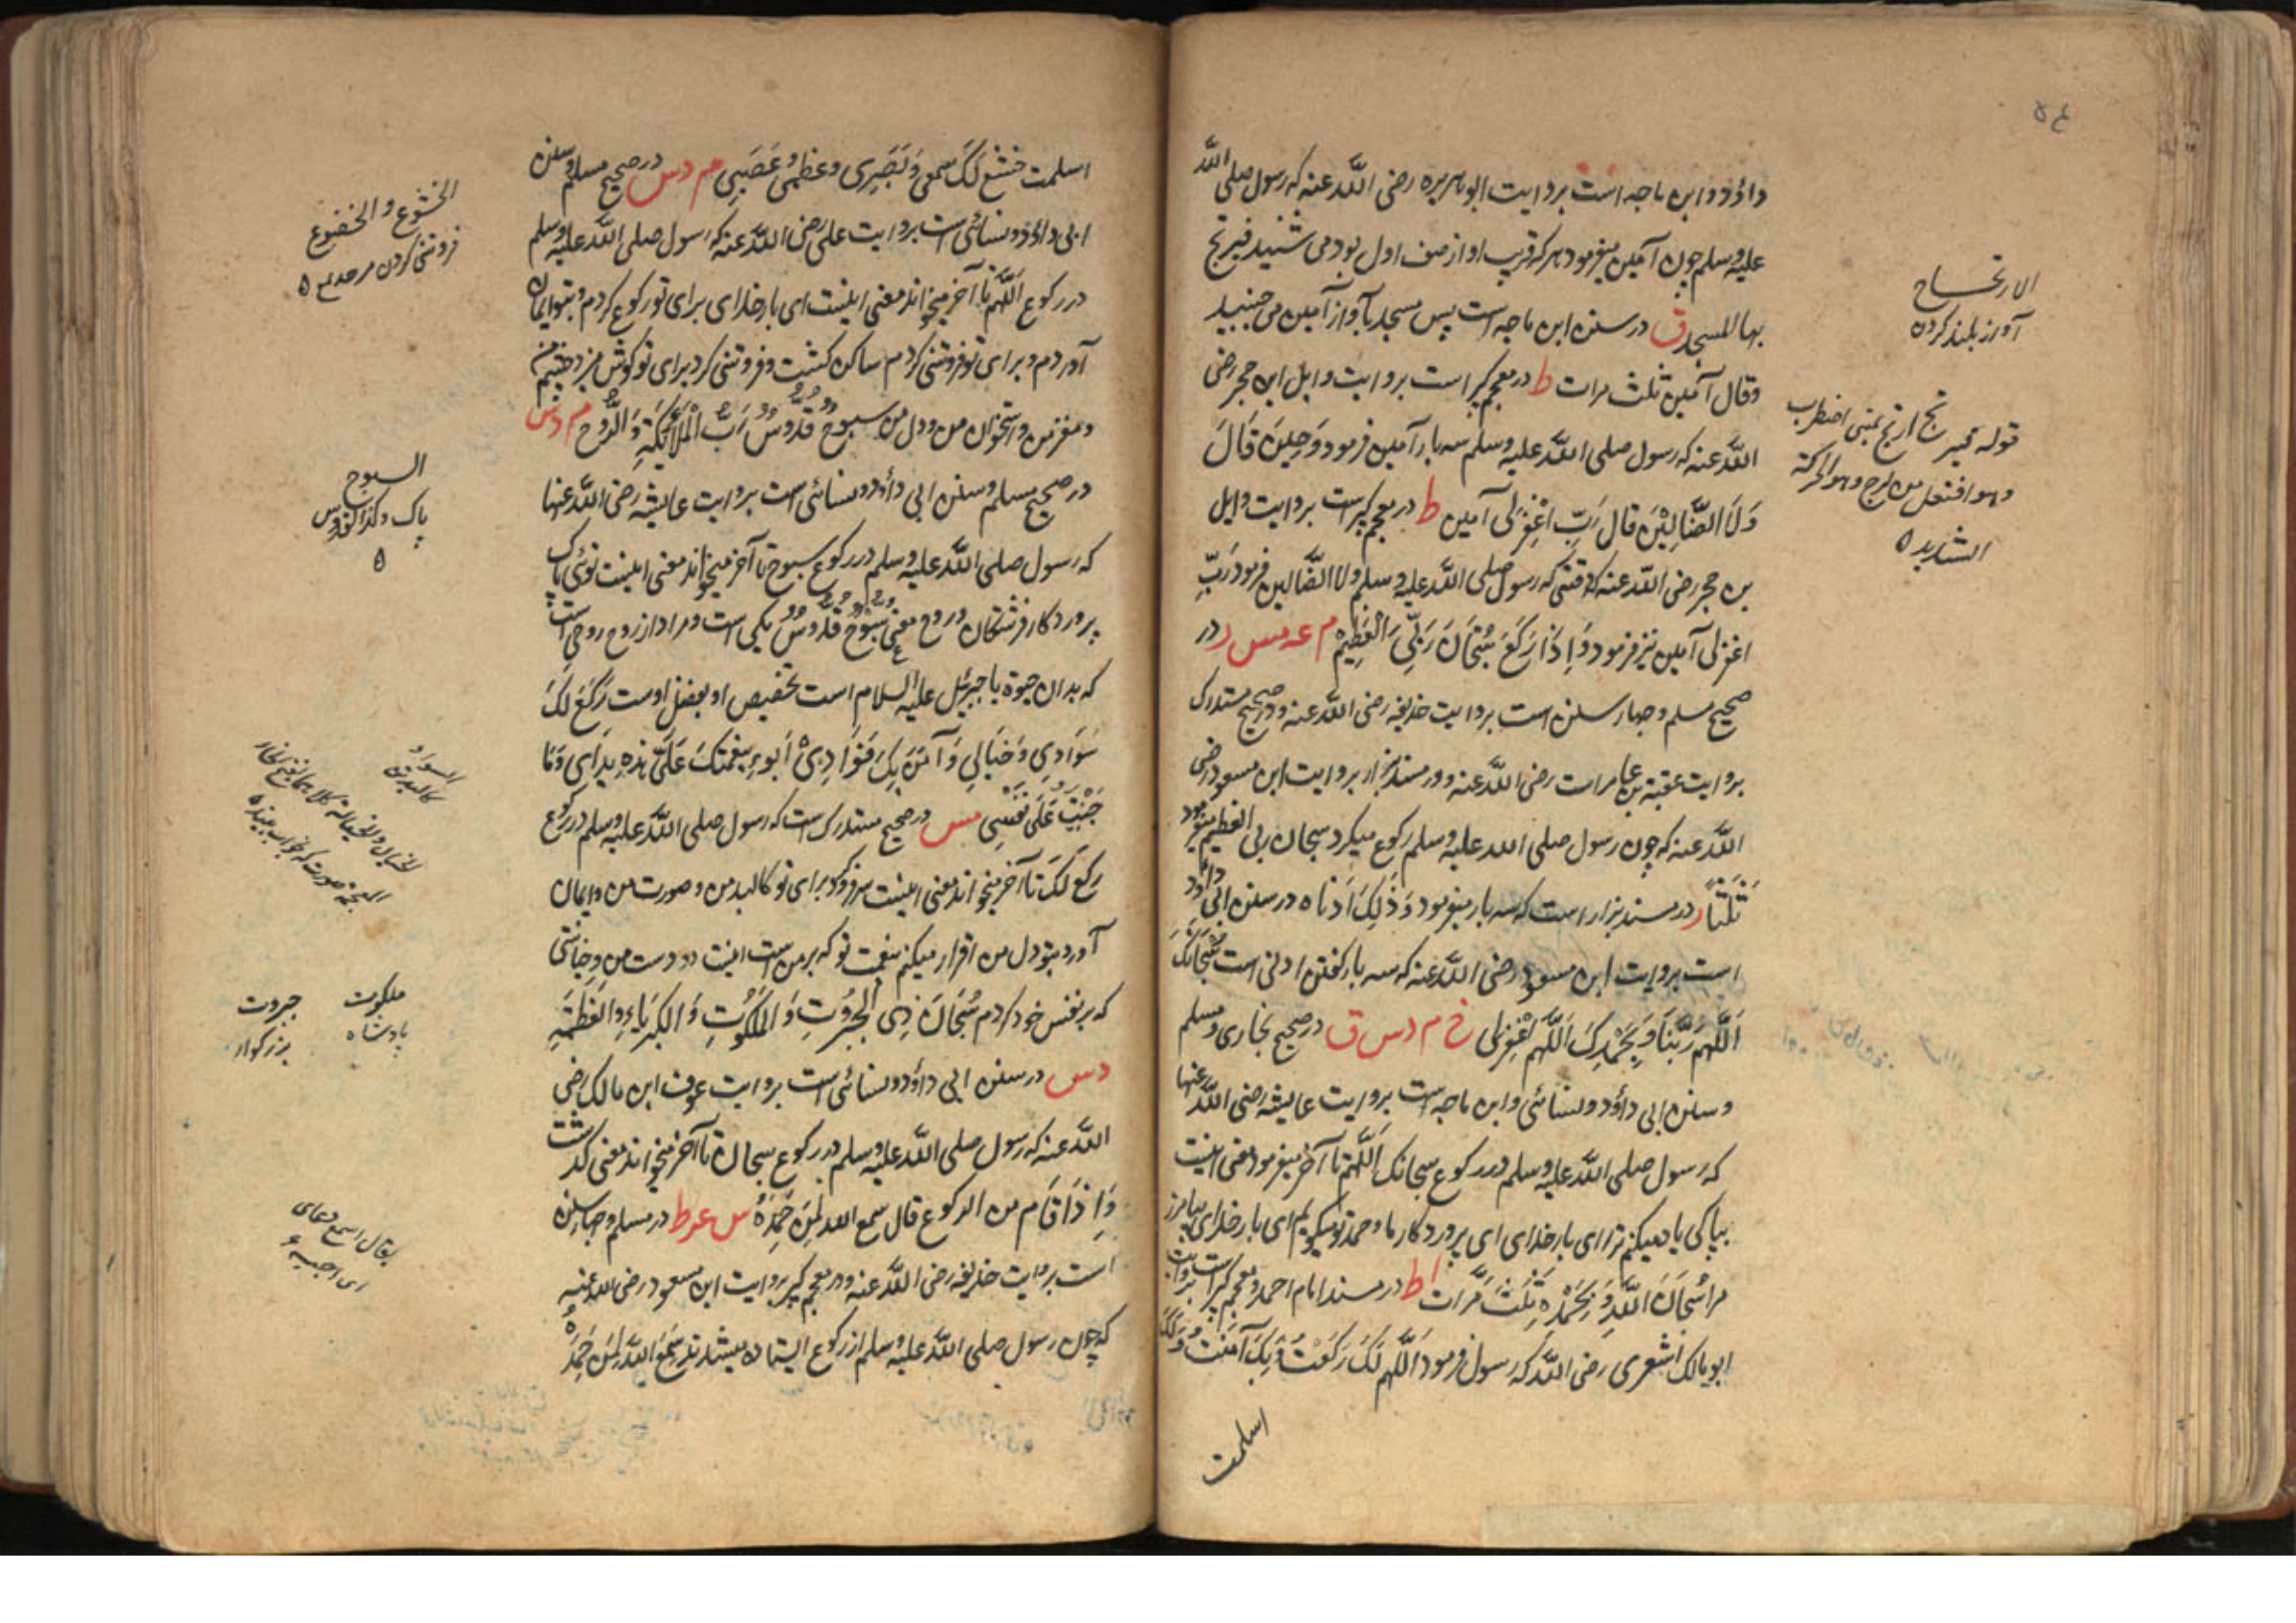 داؤد و ابن ماجه است بروایت ابو هریره رضی اللّٰه عنه که رسول صلی اللّٰه
علیه وسلم چون آمین میفرمود هر که قریب او از صف اول بودمی شنید فیرتج
بها المسجد ق در سنن ابن ماجه است پس مسجد بآواز آمین می جنبید
وقال آمین ثلث مرات ط در معجم کبیر است بروایت وایل ابن حجر رضی
اللّٰه عنه که رسول صلی اللّٰه علیه وسلم سه بار آمین فرمود وَحِینَ قَالَ
وَلَا الضَّالِیْنَ قال رَبِّ اغْفِرْلی آمین ط در معجم کبیر است بروایت وایل
بن حجر رضی اللّٰه عنه که وقتی که رسول صلی اللّٰه علیه وسلم ولا الضالین فرمود رَبِّ
اغفرلی آمین نیز فرمود وَاِذَا رَکَعَ سُبْحَانَ رَبِّیَ الْعَظِیْم م عه مس ر در
صحیح مسلم و چهار سنن است بروایت حذیفه رضی اللّٰه عنه و در صحیح مستدرک
بروایت عقبة بن عامر است رضی اللّٰه عنه و در مسند بزار بروایت ابن مسعود رضی
اللّٰه عنه که چون رسول صلی الله علیه وسلم رکوع میکرد سبحان ربی العظیم میفرمود
ثَلٰثًا ر در مسند بزار است که سه بار میفرمود وَذَلِکَ اَدْنَاه د در سنن ابی داؤد
است بروایت ابن مسعود رضی اللّٰه عنه که سه بار گفتن ادنی است سُبْحَانَکَ
اَللّٰهُمَّ رَبَّنَا وَبِحَمْدِکَ اَللّٰهُمَّ اغْفِرْلِی خ م د س ق در صحیح بخاری و مسلم
و سنن ابی داؤد و نسائی و ابن ماجه است بروایت عایشه رضی اللّٰه عنها
که رسول صلی اللّٰه علیه وسلم در رکوع سبحانک اَللّٰهُمَّ تا آخر میفرمود معنی اینست
بپاکی یاد میکنم ترا ای بار خدای ای پروردگار ما و حمد تو میگویم ای بار خدای بیامرز
مرا سُبْحَانَ اللّٰهِ وَ بِحَمْدِهِ ثَلٰثَ مَرَّات ا ط در مسند امام احمد و معجم کبیر است بروایت
ابو مالک اشعری رضی اللّٰه که رسول فرمود اَللّٰهُمَّ لَکَ رَکَعْتُ وَبِکَ آمَنْتُ وَلَکَ
اسلمت
الارتجاج
آواز بلند کردن
قوله فیرتج ارتج بمعنی اضطرب
وهو افتعل من الرج وهو الحرکة
الشدیده
اسلمت خشع لَکَ سمعی وَبَصَرِی وعظمی وعَصَبِی م د س در صحیح مسلم و سنن
ابی داؤد و نسائی است بروایت علی رضی اللّٰه عنه که رسول صلی اللّٰه علیه وسلم
در رکوع اَللّٰهُمَّ تا آخر میخواند معنی اینست ای بار خدای برای تو رکوع کردم و بتو ایمان
آوردم و برای تو فروتنی کردم ساکن گشت و فروتنی کرد برای تو گوش من و چشم من
و مغز من و استخوان من و دل من سبوحٌ قُدُّوسٌ رَبُّ الْمَلَائِکَةِ وَالرُّوح م د س
در صحیح مسلم و سنن ابی داؤد و نسائی است بروایت عایشه رضی اللّٰه عنها
که رسول صلی اللّٰه علیه وسلم در رکوع سبوح تا آخر میخواند معنی اینست توئی پاک
پروردگار فرشتگان و روح معنی سُبُّوحٌ قُدُّوسٌ یکی است و مراد از روح روحی است
که بدان حیوة یا جبرئیل علیه السلام است تخصیص او بفضل اوست رَکَعَ لَکَ
سَوَادِی وَخَیَالِی وَآمَنَ بِکَ فَوَادِیْ اَبُوءُ بِنِعْمَتِکَ عَلَیَّ هٰذِهِ یَدَایَ وَمَا
جَنَیْتُ عَلَی نَفْسِی مس در صحیح مستدرک است که رسول صلی اللّٰه علیه وسلم در رکوع
رکع لَکَ تا آخر میخواند معنی اینست سر فرو کرد برای تو کالبد من و صورت من و ایمان
آورد بتو دل من اقرار میکنم بنعمت تو که بر من است اینست دو دست من و خیانتی
که بر نفس خود کردم سُبْحَانَ ذِی الْجَبَرُوتِ وَالْمَلَکُوتِ وَالکِبْرِیَاءِ وَالعَظَمَةِ
د س در سنن ابی داؤد و نسائی است بروایت عوف ابن مالک رضی
اللّٰه عنه که رسول صلی اللّٰه علیه وسلم در رکوع سبحان تا آخر میخواند معنی گذشت
وَاِذَا قَام من الرکوع قال سمع الله لِمَنْ حَمِدَهُ در مسلم و چهار سنن
است بروایت حذیفه رضی اللّٰه عنه و در معجم کبیر بروایت ابن مسعود رضی الله عنه
که چون رسول صلی اللّٰه علیه وسلم از رکوع ایستاده میشد سَمِعَ اللّٰهُ لِمَنْ حَمِدَهُ
الخشوع والخضوع
فروتنی کردن
السبوح
پاک وکذا القدوس
السواد
کالبد
ملکوت
پادشاه
جبروت
بزرکوار
یقال اسمع دعای
ای اجبه